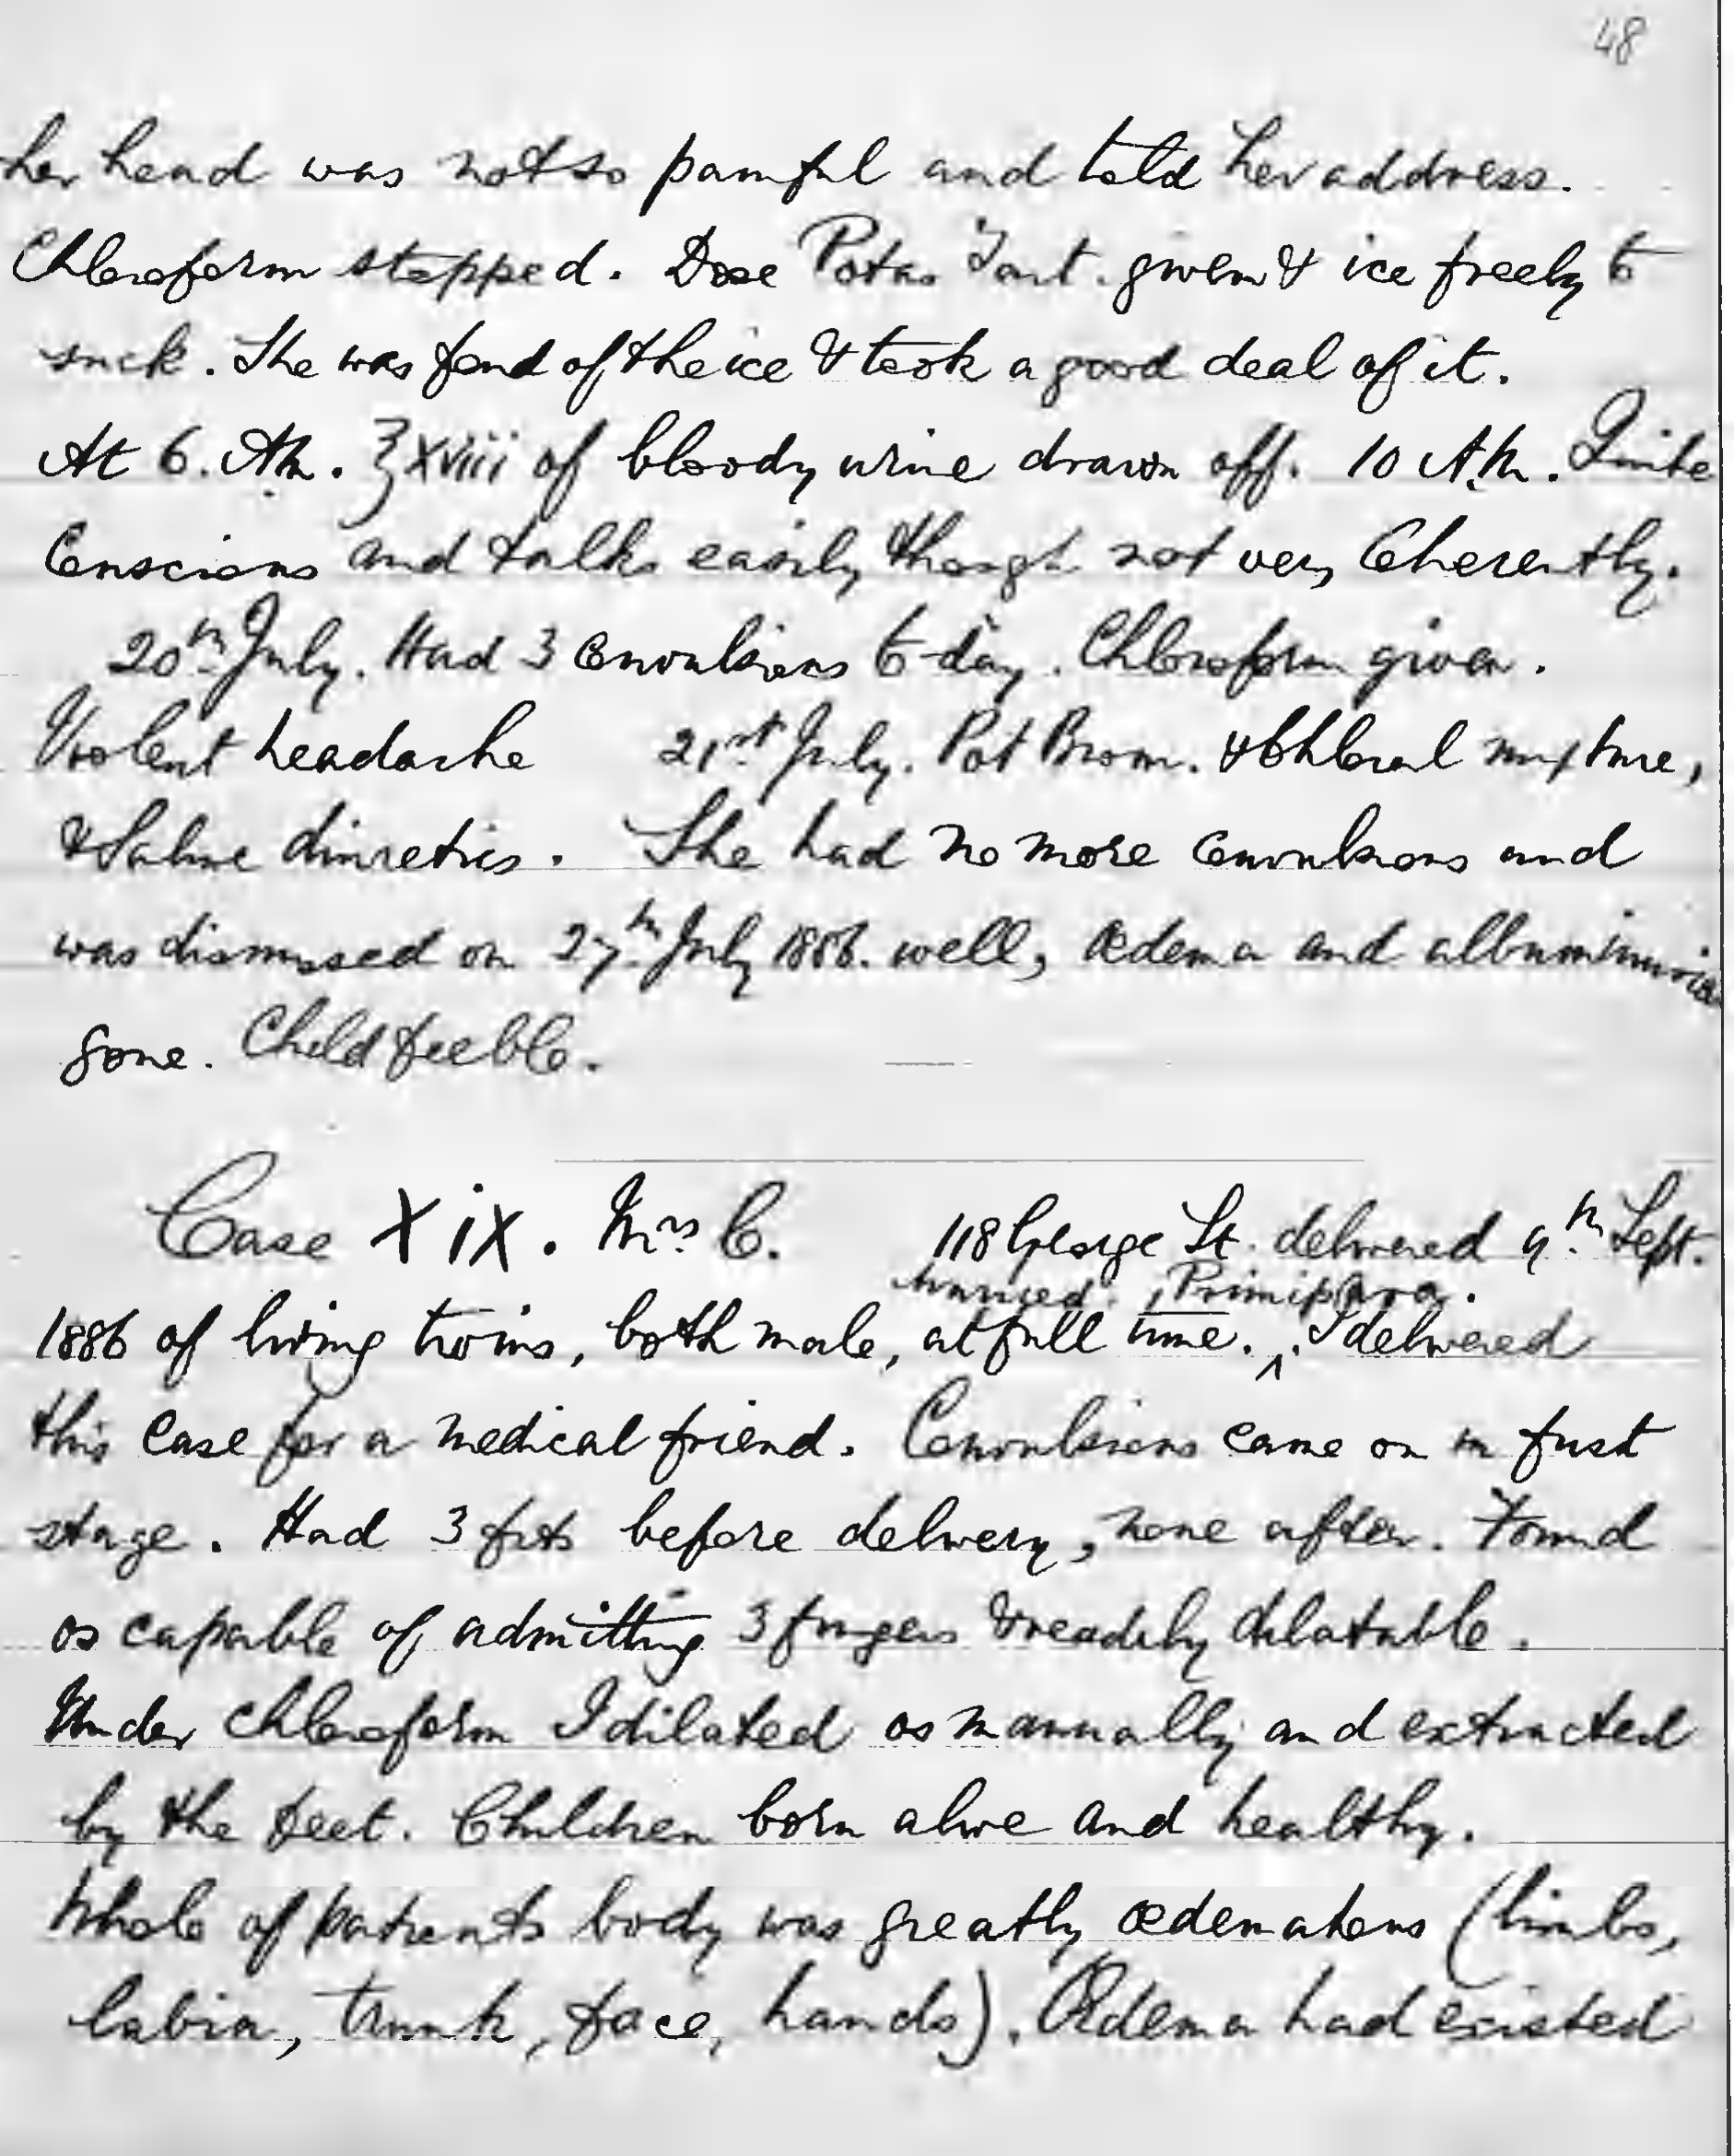 48
her head was not so painful and told her address.
Chloroform stopped. Dose Potas. Tart. given & ice freely to
suck. She was fond of the ice & took a good deal of it.
At 6. AM. ℥xviii of bloody urine drawn off. 10 A.M. Quite
Conscious and talks easily though not very Coherently.
20th July. Had 3 Convulsions to-day. Chloroform given.
Violent headache 21st July. Pot Brom. & Chloral mixture,
& Saline diuretics. She had no more Convulsions and
was dismissed on 27th July 1886. well, Œdema and albuminuria
gone. Child feeble.
Case XiX. Mrs C. 118 George St. delivered 9th Sept.
married. , Primipara.
1886 of living twins, both male, at full time. ^. I delivered
this Case for a medical friend. Convulsions came on in first
stage. Had 3 fits before delivery, none after. Found
os capable of admitting 3 fingers & readily dilatable.
Under Chloroform I dilated os manually and extracted
by the feet. Children born alive and healthy.
Whole of patients body was greatly œdematous (limbs,
labia, trunk, face, hands). Œdema had existed